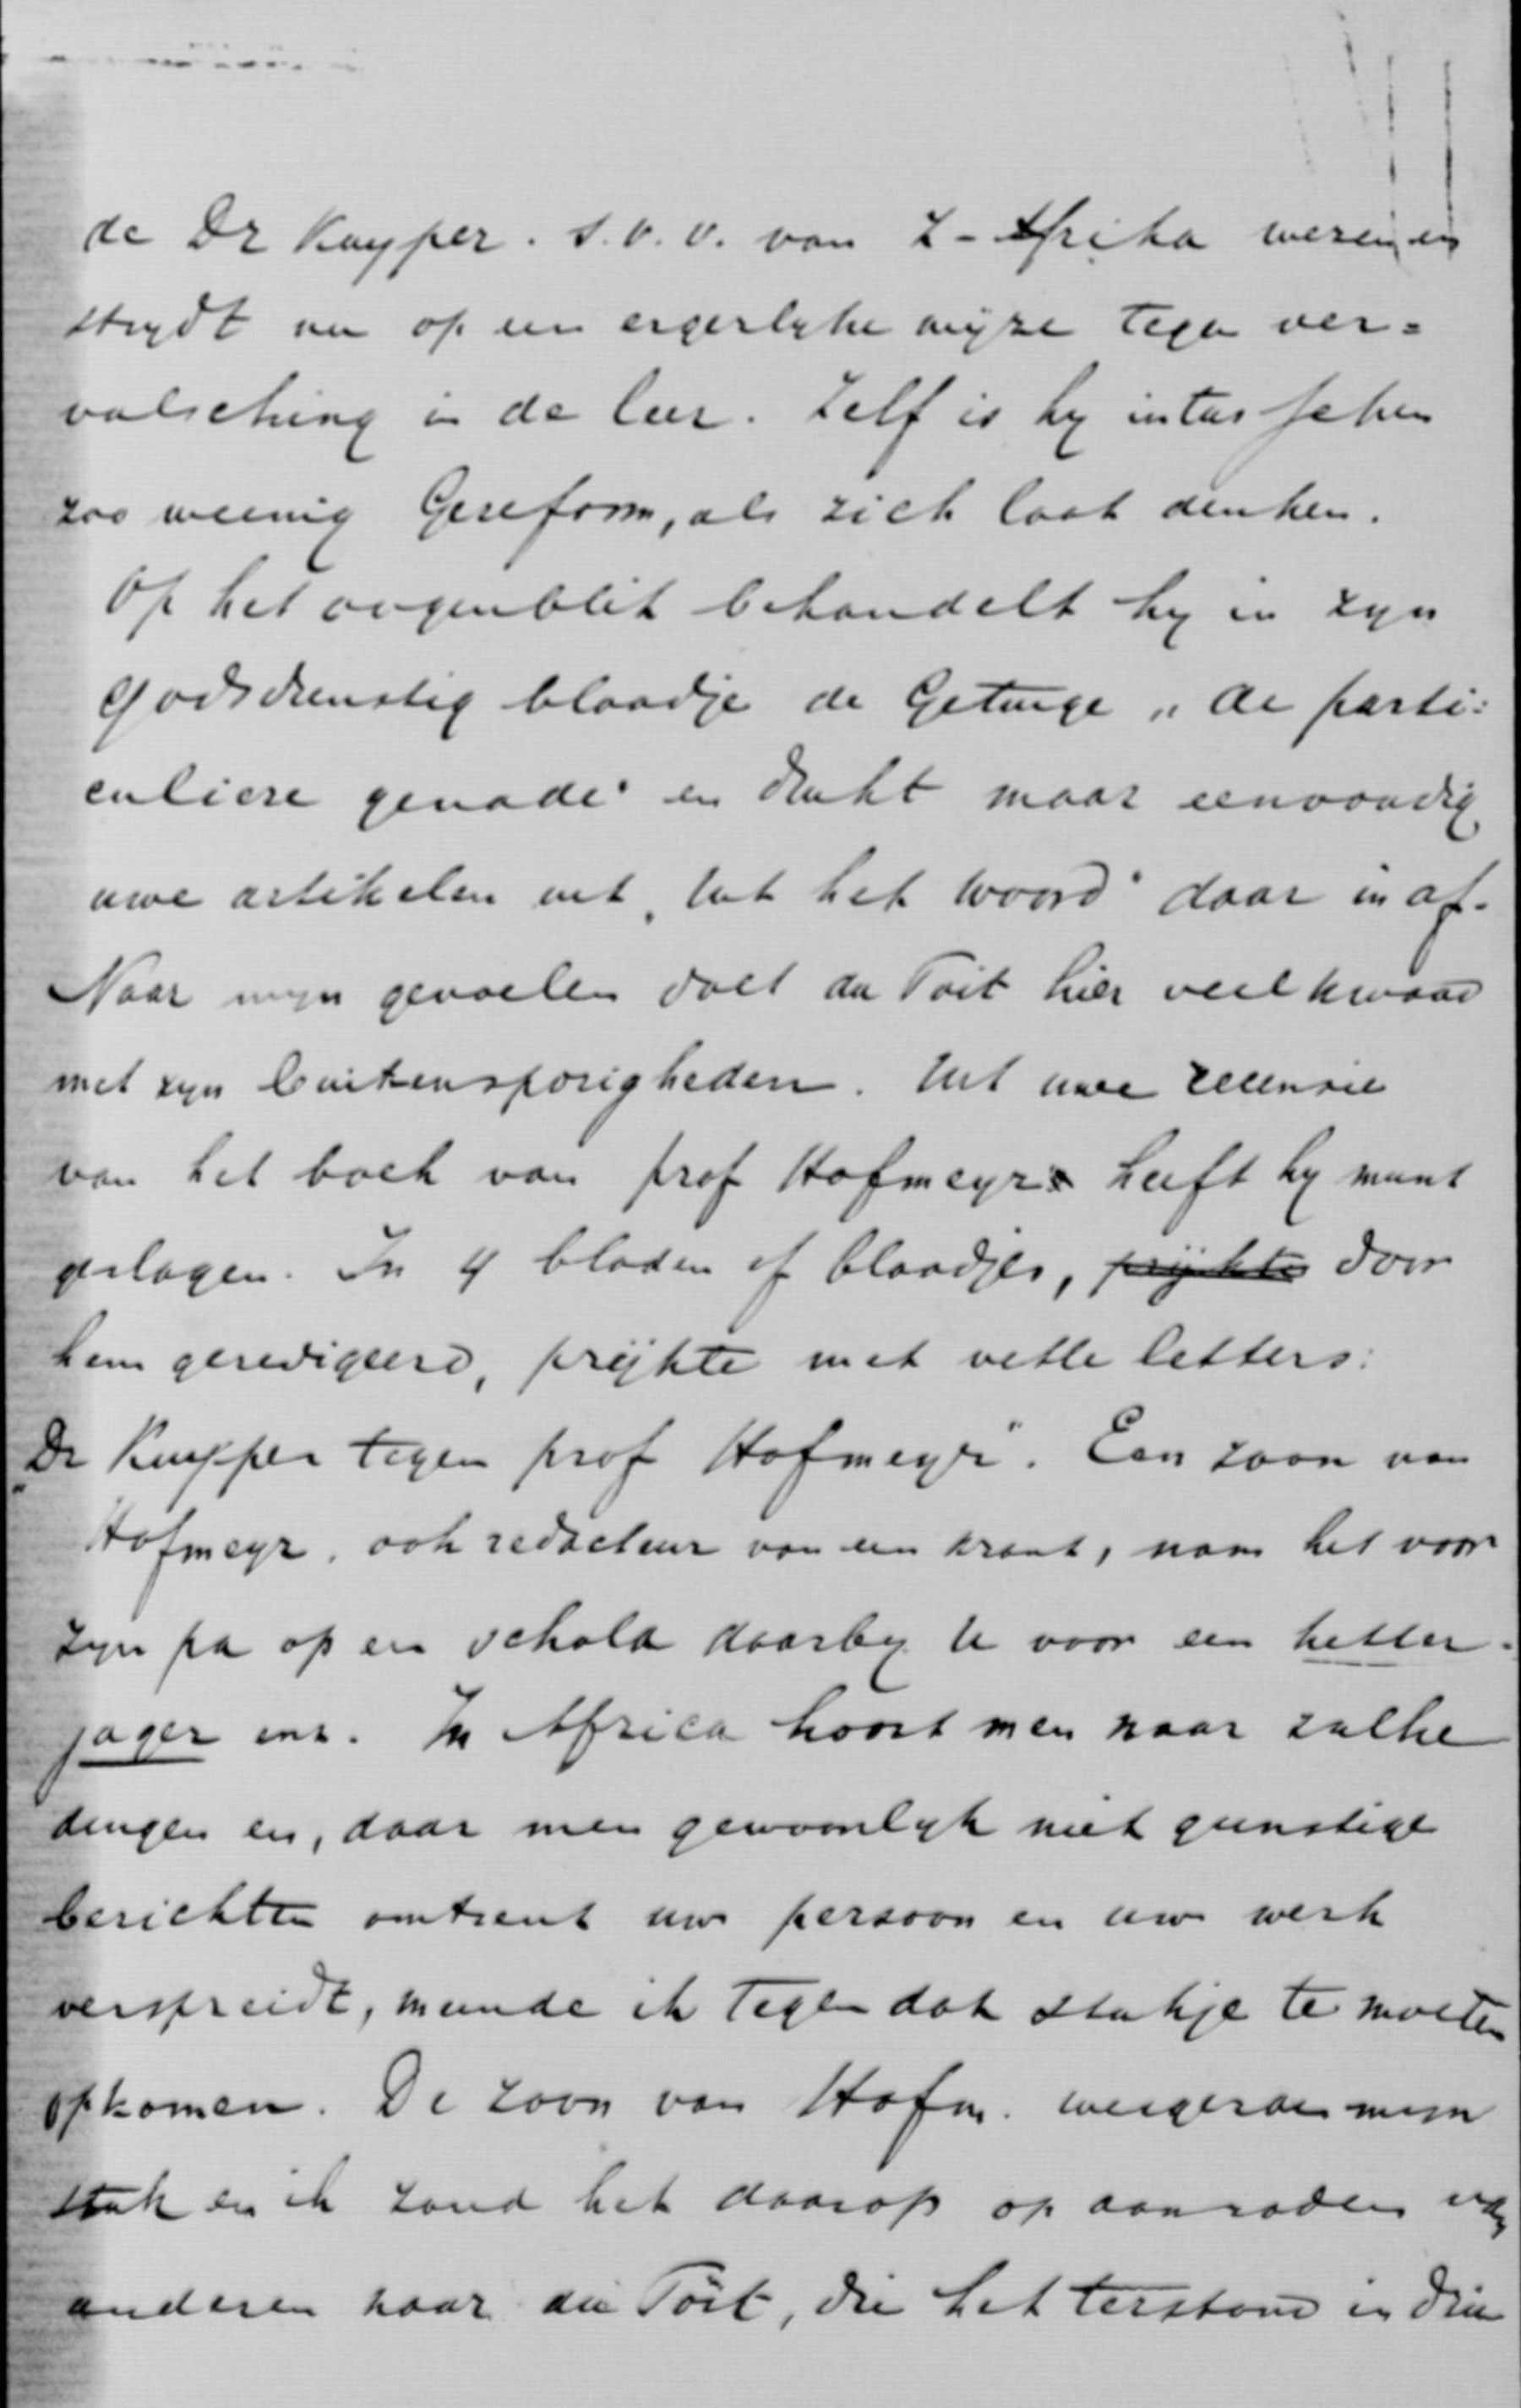 de Dr Kuyper. s.v.v. van Z-Afrika wezen en
strydt nu op een ergerlyke wijze tegen ver=
valsching in de leer. Zelf is hy intusschen
zoo weinig Gereform, als zich laat denken.
Op het oogenblik behandelt hy in zyn
godsdienstig blaadje de Getuige „de parti=
culiere genade" en drukt maar eenvoudig
uwe artikelen uit „uit het woord" daar in af.
Naar myn gevoelen doet du Toit hier veel kwaad
met zyn buitensporigheden. Uit uwe recensie
van het boek van prof Hofmeyr heeft hy munt
geslagen. In 4 bladen of blaadjes, prijkte door
hem geredigeerd, prijkte met vette letters:
„Dr Kuyper tegen prof Hofmeyr". Een zoon van
Hofmeyr, ook redacteur van een krant, nam het voor
zyn pa op en schold daarby U voor een ketter-
jager enz. In Africa hoort men naar zulke
dingen en, daar men gewoonlyk niet gunstige
berichten omtrent uw persoon en uw werk
verspreidt, meende ik tegen dat stukje te moeten
opkomen. De zoon van Hofm. weigerde myn
stuk en ik zond het daarop op aanraden van
anderen naar du Toit, die het terstond in zijn